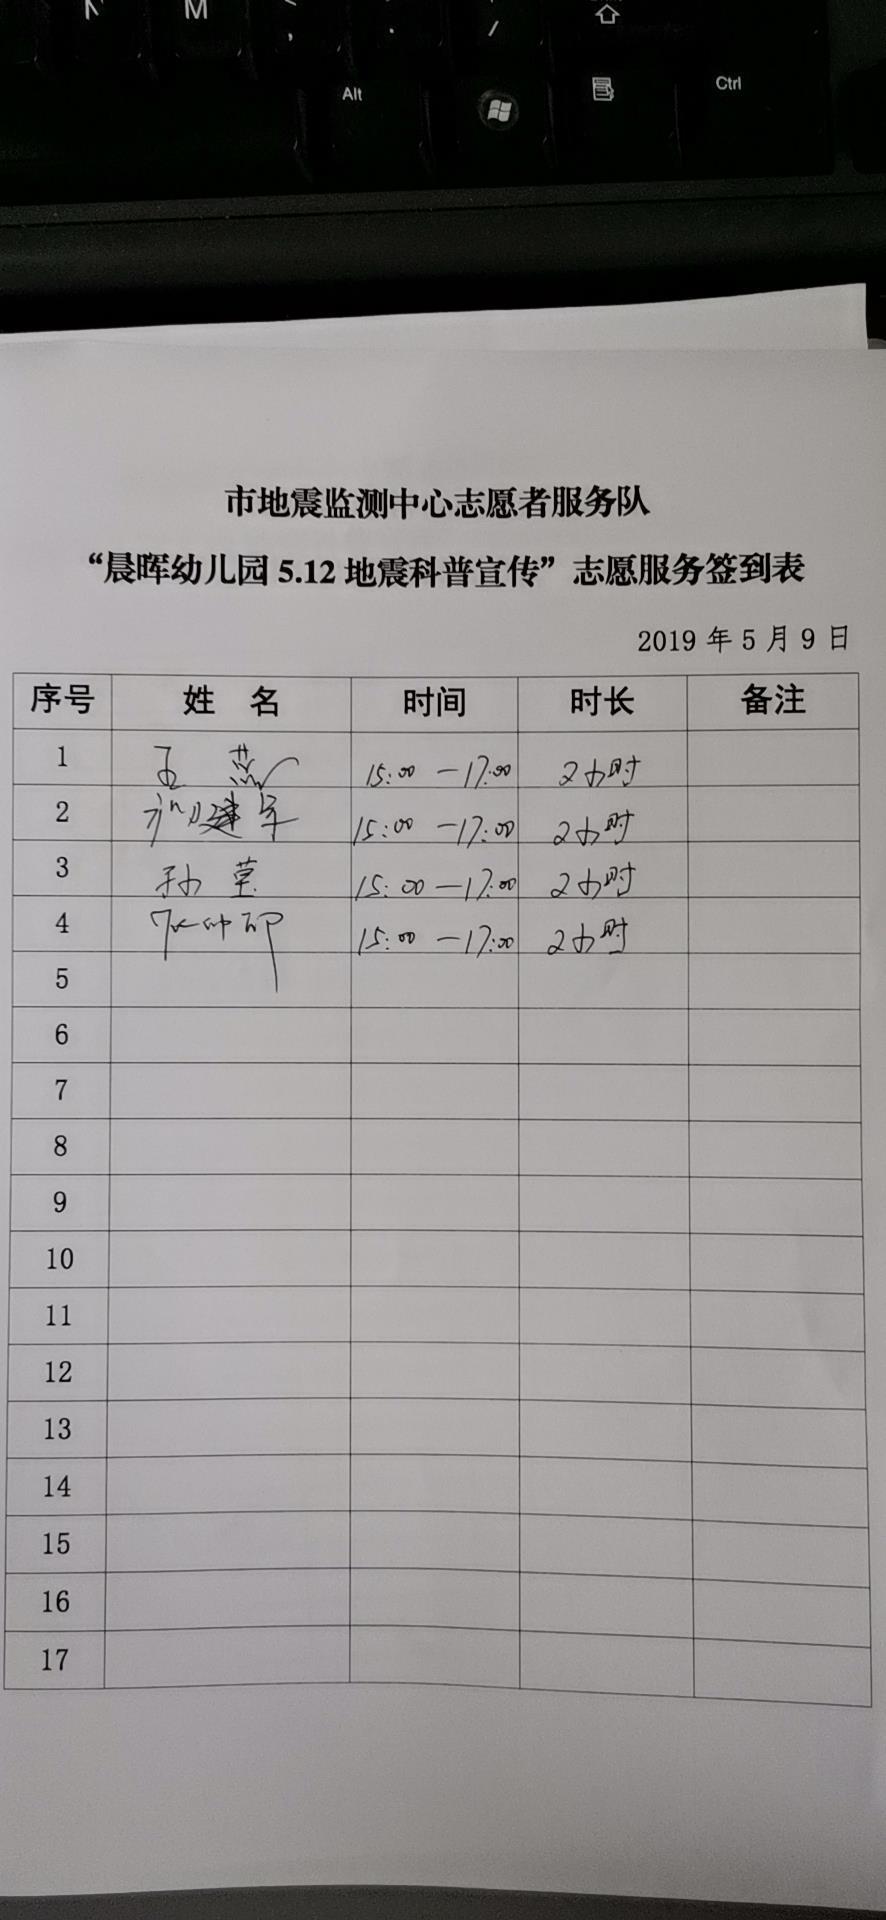 N M , . /
Alt Ctrl
市地震监测中心志愿者服务队
“晨晖幼儿园 5.12 地震科普宣传”志愿服务签到表
2019 年 5 月 9 日
序号 姓 名 时间 时长 备注
1 15:00 —17:00 2小时
2 建军 15:00 —17:00 2小时
3 孙 15:00 —17:00 2小时
4 15:00 —17:00 2小时
5
6
7
8
9
10
11
12
13
14
15
16
17